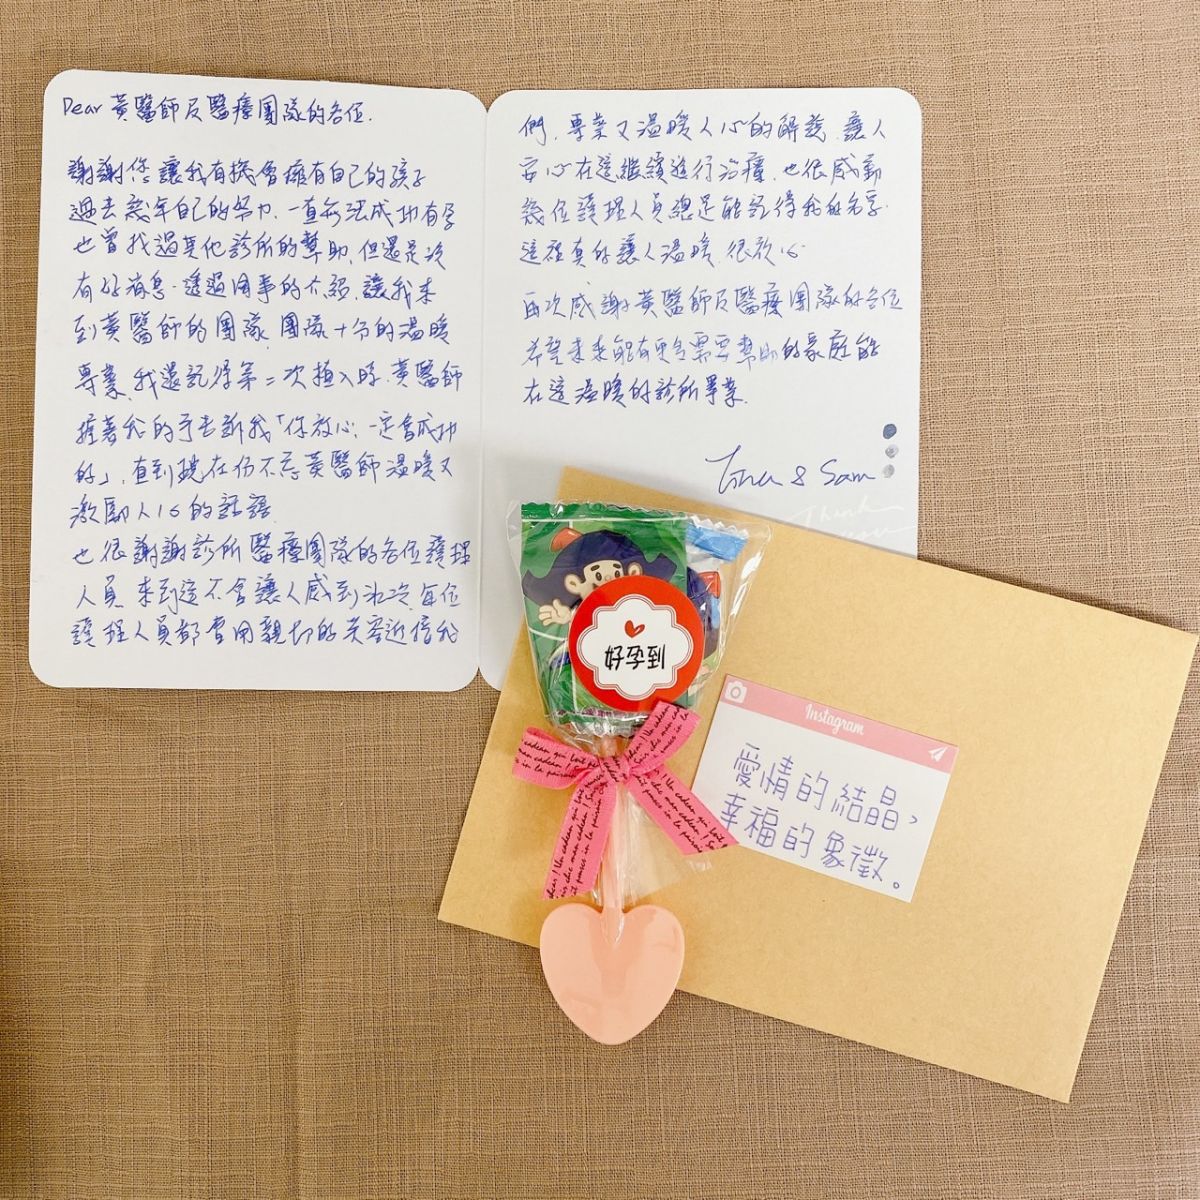 Dear 黃醫師及醫療團隊的各位.
謝謝您讓我有機會擁有自己的孩子
過去幾年自己的努力、一直無法成功有孕
也曾找過其他診所的幫助、但還是沒
有好消息.透過同事的介紹、讓我來
到黃醫師的團隊、團隊十分的溫暖
專業、我還記得第二次植入時、黃醫師
握著我的手告訴我「你放心、一定會成功
的」, 直到現在仍不忘黃醫師溫暖又
激勵人心的話語
也很謝謝診所醫療團隊的各位護理
人員、來到這不會讓人感到冰冷、每位
護理人員都會用親切的笑容迎接我
們、專業又溫暖人心的解說、讓人
安心在這繼續進行治療、也很感動
幾位護理人員總是能記得我的名字.
這裡真的讓人溫暖、很放心
再次感謝黃醫師及醫療團隊的各位
希望未來能有更多需要幫助的家庭能
在這溫暖的診所畢業.
& Sam
Thank
You
好孕到
Instagram
愛情的結晶，
幸福的象徵。